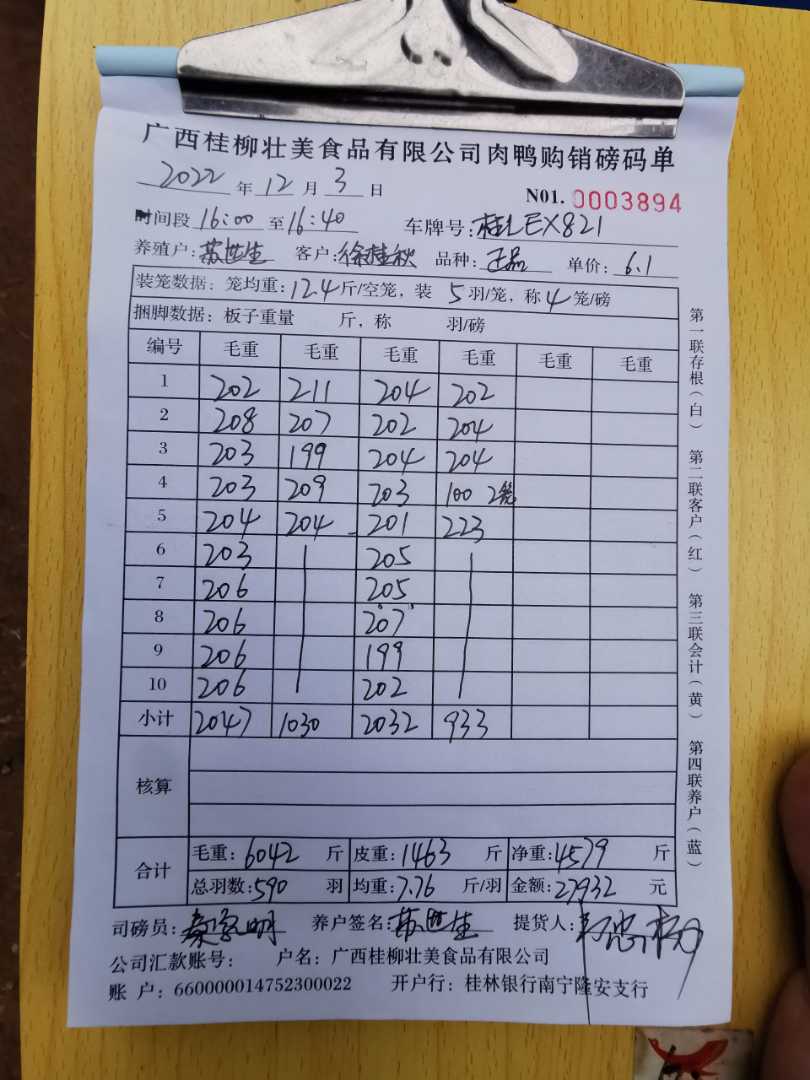 广西桂柳壮美食品有限公司肉鸭购销磅码单
2022 年 12 月 3 日 N01. 0003894
时间段 16:00 至 16:40 车牌号: EX821
养殖户: 苏世生 客户: 徐桂秋 品种: 正品 单价: 6.1
装笼数据: 笼均重: 12.4 斤/空笼, 装 5 羽/笼, 称 4 笼/磅
捆脚数据: 板子重量 斤, 称 羽/磅
编号 毛重 毛重 毛重 毛重 毛重 毛重
1 202 211 204 202
2 208 207 202 204
3 203 199 204 204
4 203 209 203 100 2笼
5 204 204 201 223
6 203 205
7 206 205
8 206 207
9 206 199
10 206 202
小计 2047 1030 2032 933
核算
合计 毛重: 6042 斤 皮重: 1463 斤 净重: 4579 斤
总羽数: 590 羽 均重: 7.76 斤/羽 金额: 27932 元
司磅员: 养户签名: 苏世生 提货人:
公司汇款账号: 户名: 广西桂柳壮美食品有限公司
账 户: 660000014752300022 开户行: 桂林银行南宁隆安支行
第一联存根(白) 第二联客户(红) 第三联会计(黄) 第四联养户(蓝)